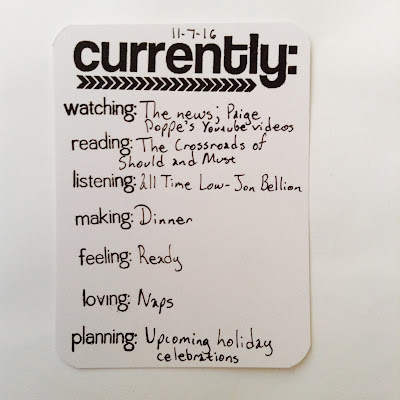 11-7-16
currently:
watching: The news; Paige
Poppe's Youtube videos
reading: The Crossroads of
Should and Must
listening: All Time Low - Jon Bellion
making: Dinner
feeling: Ready
loving: Naps
planning: Upcoming holiday
celebrations